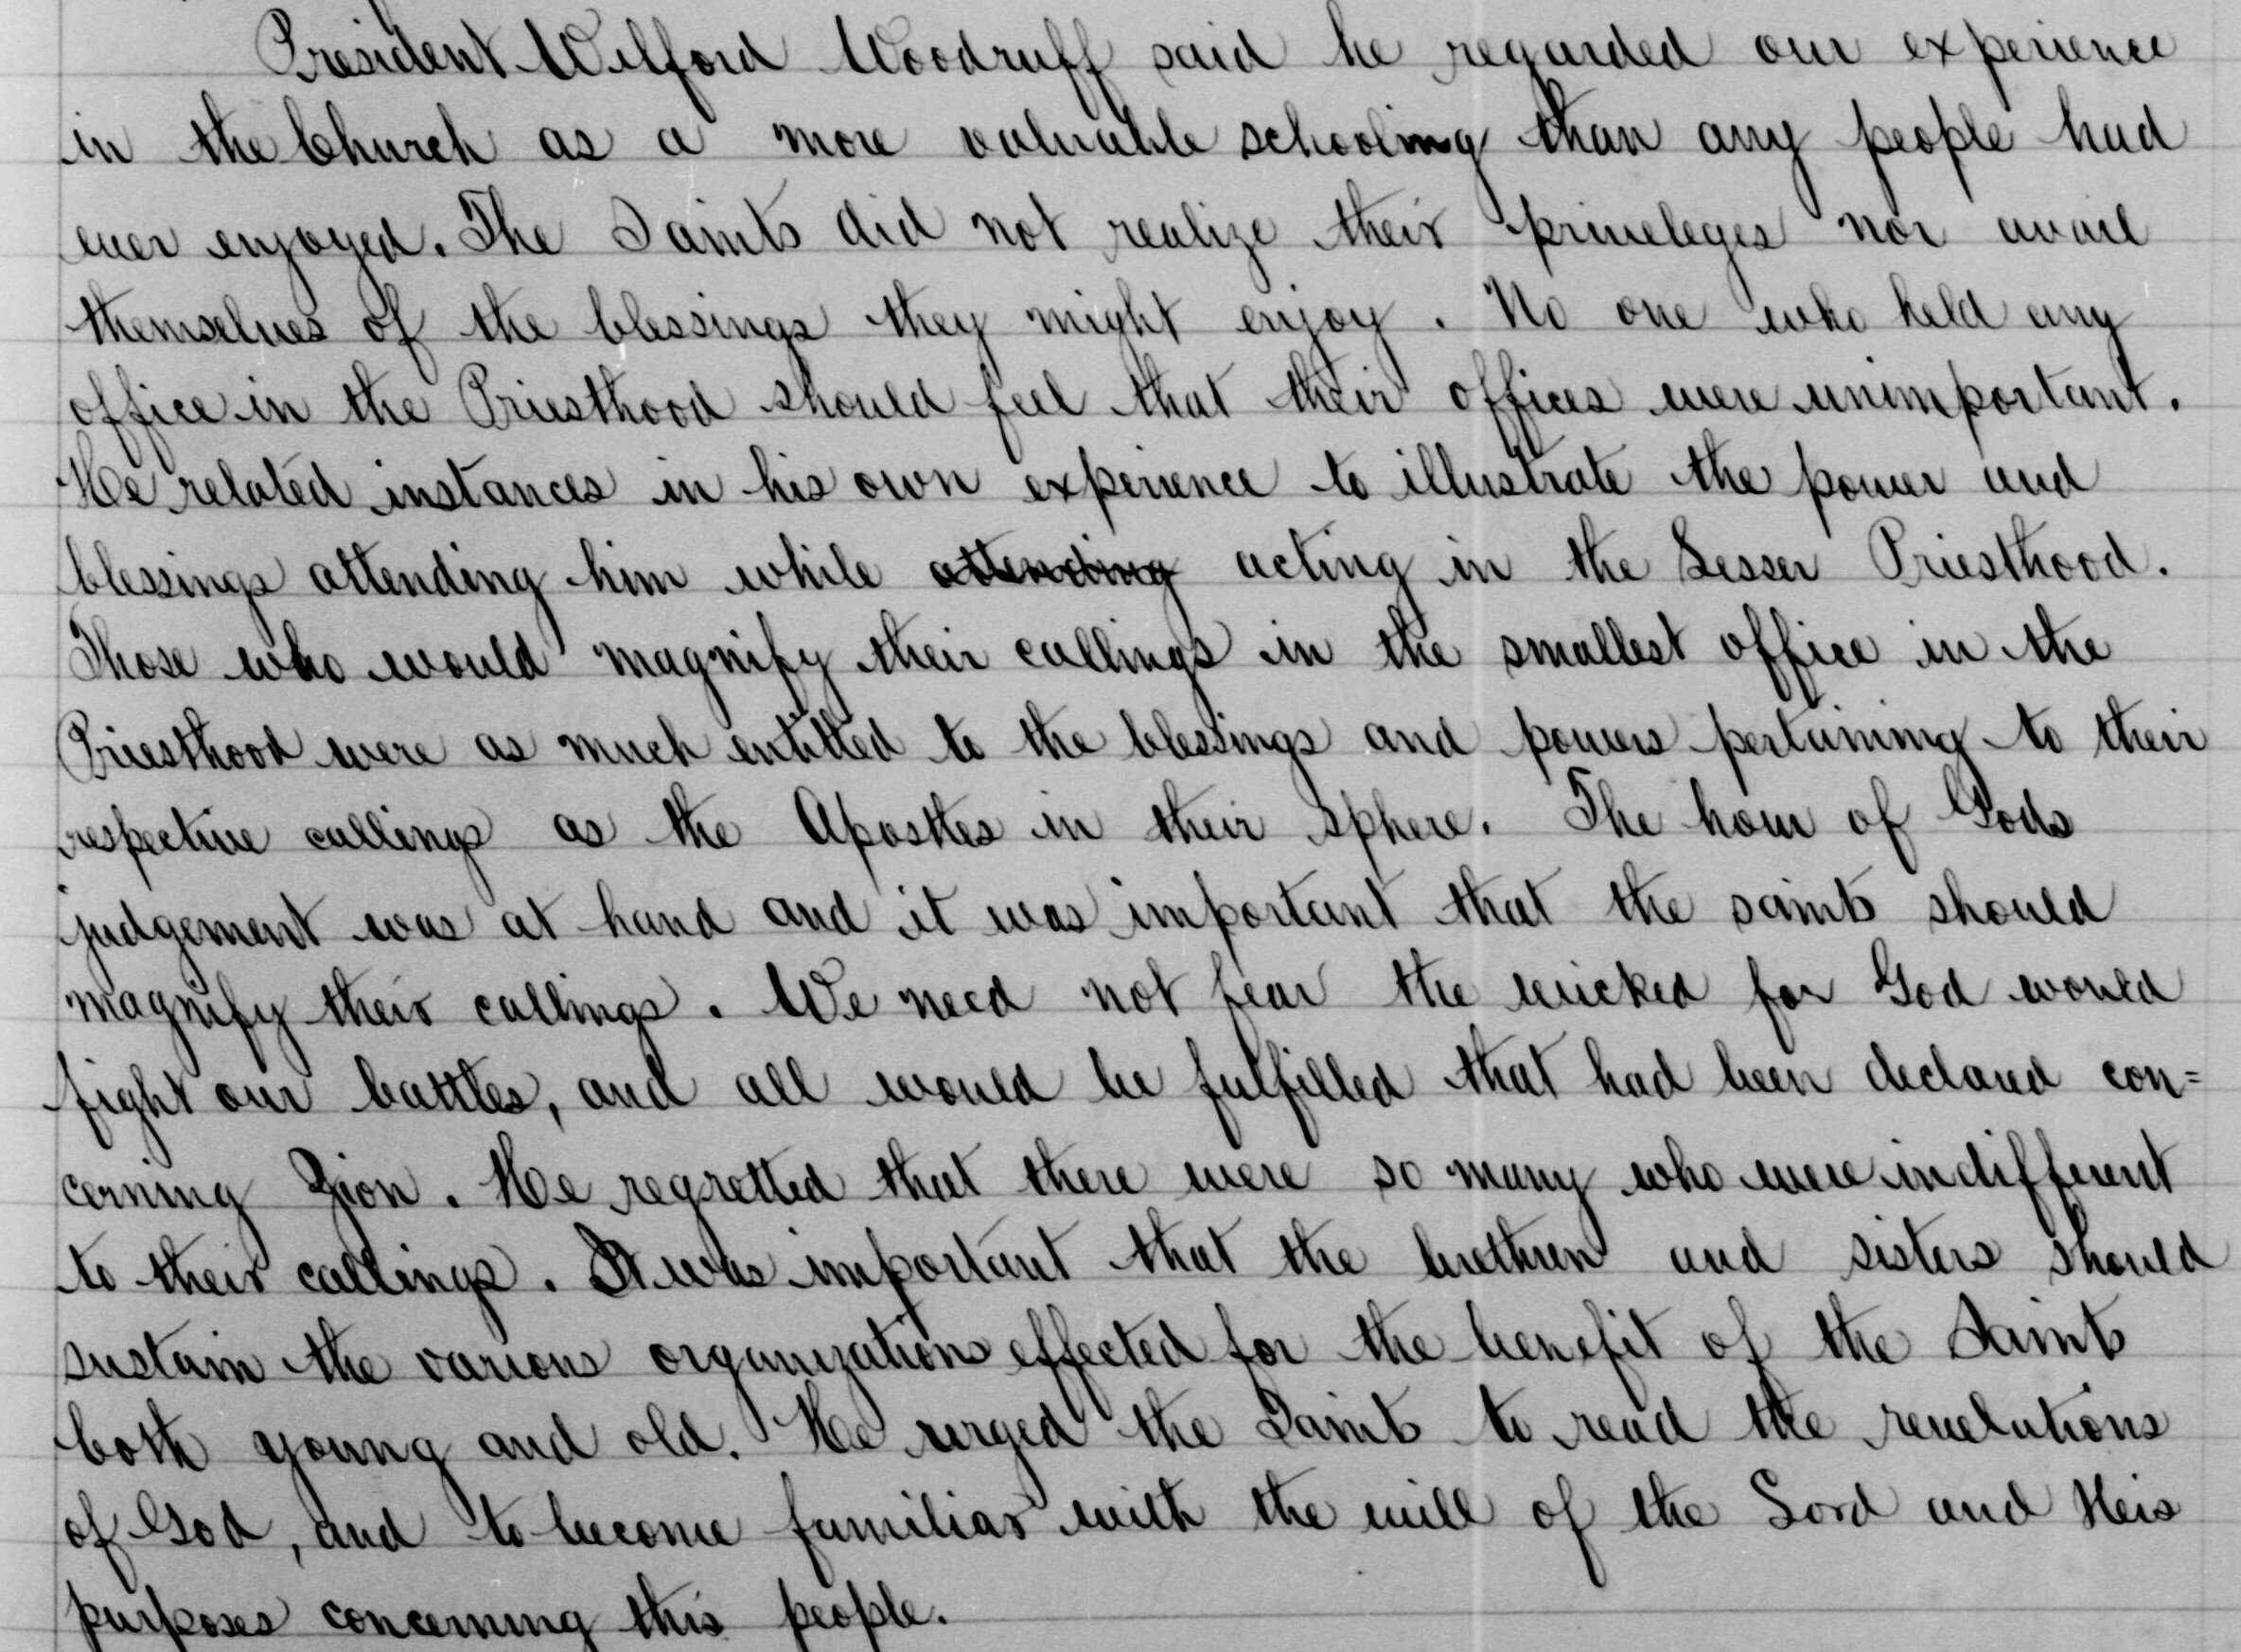 President Wilford Woodruff said he regarded our experience
in the Church as a more valuable schooling than any people had
ever enjoyed. The Saints did not realize their priveleges nor avail
themselves of the blessings they might enjoy. No one who held any
office in the Priesthood should feel that their offices were unimportant.
He related instances in his own experience to illustrate the power and
blessings attending him while attending acting in the Lesser Priesthood.
Those who would magnify their callings in the smallest office in the
Priesthood were as much entitled to the blessings and powers pertaining to their
respective callings as the Apostles in their sphere. The hour of Gods
judgement was at hand and it was important that the saints should
magnify their callings. We need not fear the wicked for God would
fight our battles, and all would be fulfilled that had been declared con=
cerning Zion. He regretted that there were so many who were indifferent
to their callings. It was important that the brethren and sisters should
sustain the various organizations effected for the benefit of the Saints
both young and old. He urged the Saints to read the revelations
of God, and to become familiar with the will of the Lord and His
purposes concerning this people.